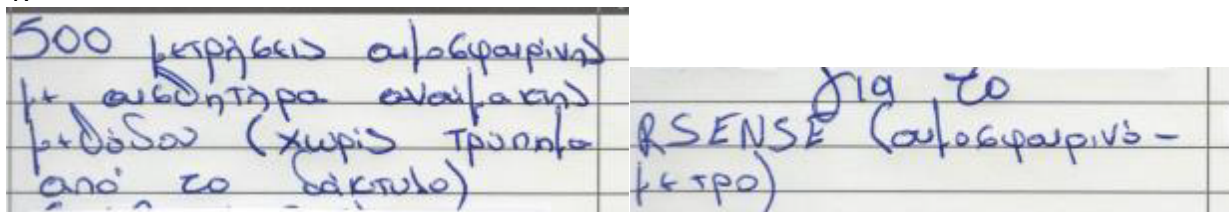 500 μετρήσεις αιμοσφαιρίνης
με αισθητήρα αναίμακτης
μεθόδου (χωρίς τρύπημα
από το δάκτυλο)
για το
RSENSE (αιμοσφαιρινό-
μετρο)